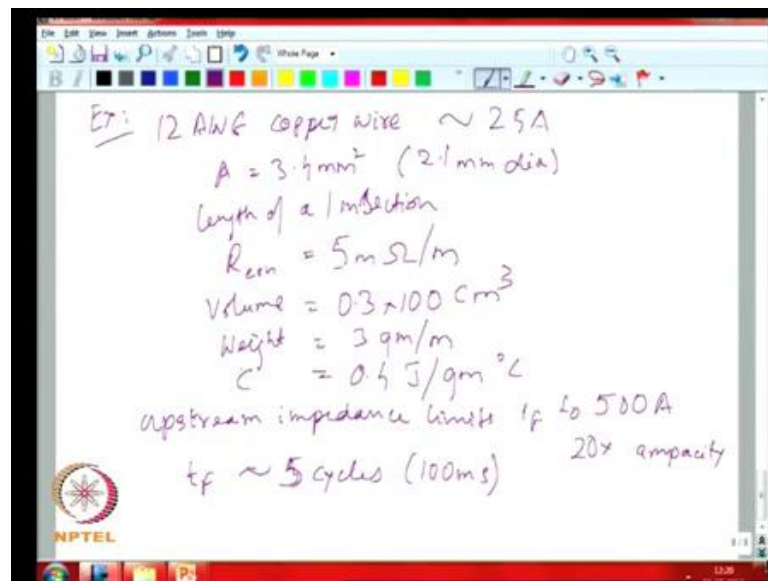 File Edit View Insert Actions Tools Help
Whole Page
B I
Ex: 12 AWG copper wire ~ 25A
A = 3.4mm² (2.1mm dia)
length of a 1m section
R = 5mΩ/m
Volume = 0.3×100 cm³
Weight = 3 gm/m
C = 0.4 J/gm°C
upstream impedance limits i_F to 500A
20x ampacity
t_F ~ 5 cycles (100ms)
NPTEL
8/8
12:28